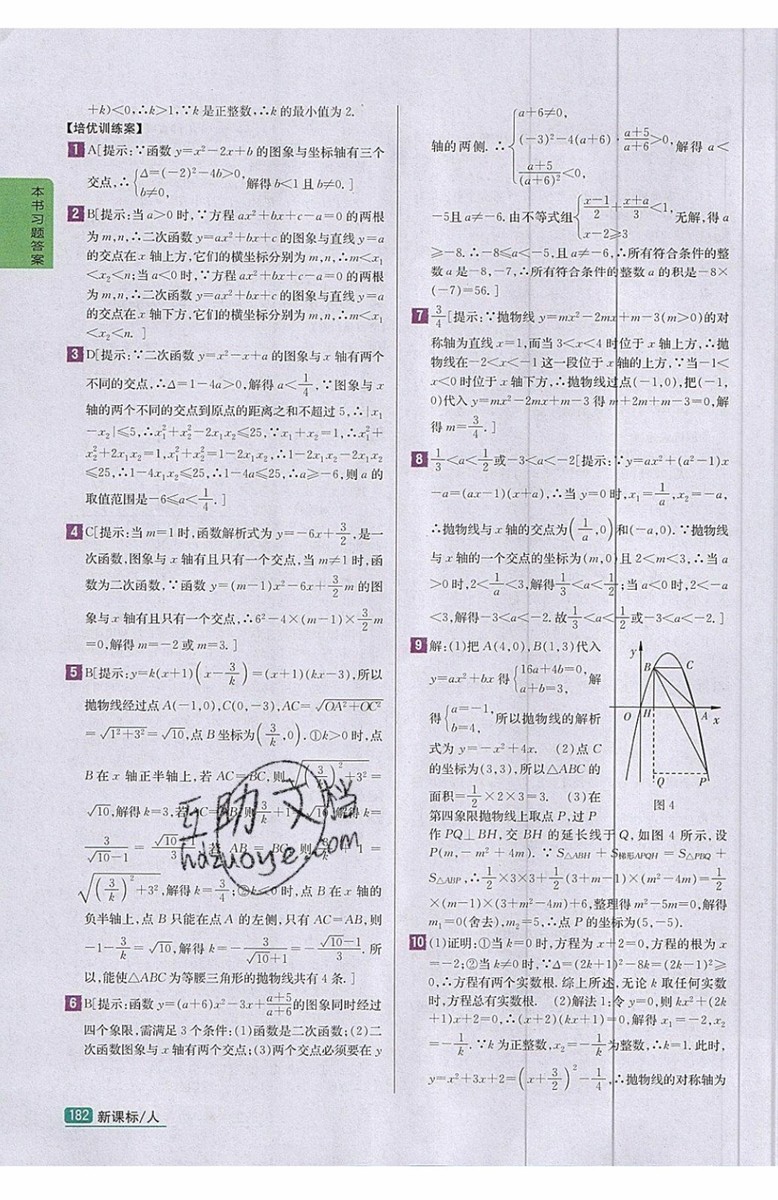 +k)<0,∴k>1,∵k是正整数,∴k的最小值为2.
【培优训练案】
1 A[提示:∵函数 y=x²-2x+b 的图象与坐标轴有三个
交点,∴{Δ=(-2)²-4b>0, b≠0, 解得 b<1 且 b≠0. ]
2 B[提示:当 a>0 时,∵方程 ax²+bx+c-a=0 的两根
为 m,n,∴二次函数 y=ax²+bx+c 的图象与直线 y=a
的交点在 x 轴上方,它们的横坐标分别为 m,n,∴m<x₁
<x₂<n;当 a<0 时,∵方程 ax²+bx+c-a=0 的两根
为 m,n,∴二次函数 y=ax²+bx+c 的图象与直线 y=a
的交点在 x 轴下方,它们的横坐标分别为 m,n,∴m<x₁
<x₂<n. ]
3 D[提示:∵二次函数 y=x²-x+a 的图象与 x 轴有两个
不同的交点,∴Δ=1-4a>0,解得 a<1/4,∵图象与 x
轴的两个不同的交点到原点的距离之和不超过 5,∴|x₁
-x₂|≤5,∴x₁²+x₂²-2x₁x₂≤25,∵x₁+x₂=1,∴x₁²+
x₂²+2x₁x₂=1,x₁²+x₂²=1-2x₁x₂,∴1-2x₁x₂-2x₁x₂
≤25,∴1-4x₁x₂≤25,∴1-4a≤25,∴a≥-6,则 a 的
取值范围是-6≤a<1/4. ]
4 C[提示:当 m=1 时,函数解析式为 y=-6x+3/2,是一
次函数,图象与 x 轴有且只有一个交点,当 m≠1 时,函
数为二次函数,∵函数 y=(m-1)x²-6x+3/2 m 的图
象与 x 轴有且只有一个交点,∴6²-4×(m-1)×3/2 m
=0,解得 m=-2 或 m=3. ]
5 B[提示:y=k(x+1)(x-3/k)=(x+1)(kx-3),所以
抛物线经过点 A(-1,0),C(0,-3),AC=√(OA²+OC²)
=√(1²+3²)=√10,点 B 坐标为(3/k,0).①k>0 时,点
B 在 x 轴正半轴上,若 AC=BC,则√((3/k)²+3²)=
√10,解得 k=3,若 AC=AB,则 3/k+1=√10,解得 k=
3/(√10-1)=(√10+1)/3,若 AB=BC,则 3/k+1=
√((3/k)²+3²),解得 k=3/4;②k<0 时,点 B 在 x 轴的
负半轴上,点 B 只能在点 A 的左侧,只有 AC=AB,则
-1-3/k=√10,解得 k=-3/(√10+1)=-(√10-1)/3.所
以,能使△ABC 为等腰三角形的抛物线共有 4 条. ]
6 B[提示:函数 y=(a+6)x²-3x+(a+5)/(a+6)的图象同时经过
四个象限,需满足 3 个条件:(1)函数是二次函数;(2)二
次函数图象与 x 轴有两个交点;(3)两个交点必须要在 y
轴的两侧.∴{a+6≠0, (-3)²-4(a+6)·(a+5)/(a+6)>0, (a+5)/(a+6)²<0, 解得 a<
-5且 a≠-6.由不等式组{(x-1)/2+(x+a)/3<1, x-2≥3 无解,得 a
≥-8.∴-8≤a<-5,且 a≠-6,∴所有符合条件的整
数 a 是-8,-7,∴所有符合条件的整数 a 的积是-8×
(-7)=56. ]
7 3/4[提示:∵抛物线 y=mx²-2mx+m-3(m>0)的对
称轴为直线 x=1,而当 3<x<4 时位于 x 轴上方,∴抛
物线在-2<x<-1 这一段位于 x 轴的上方,∵当-1<
x<0 时位于 x 轴下方,∴抛物线过点(-1,0),把(-1,
0)代入 y=mx²-2mx+m-3 得 m+2m+m-3=0,解
得 m=3/4. ]
8 1/3<a<1/2或-3<a<-2[提示:∵y=ax²+(a²-1)x
-a=(ax-1)(x+a),∴当 y=0 时,x₁=1/a,x₂=-a,
∴抛物线与 x 轴的交点为(1/a,0)和(-a,0).∵抛物线
与 x 轴的一个交点的坐标为(m,0)且 2<m<3,∴当 a
>0 时,2<1/a<3,解得 1/3<a<1/2;当 a<0 时,2<-a
<3,解得-3<a<-2.故 1/3<a<1/2或-3<a<-2. ]
9 解:(1)把 A(4,0),B(1,3)代入
y=ax²+bx 得{16a+4b=0, a+b=3, 解
得{a=-1, b=4, 所以抛物线的解析
式为 y=-x²+4x. (2)点 C
的坐标为(3,3),所以△ABC 的
面积=1/2×2×3=3. (3)在
第四象限抛物线上取点 P,过 P
作 PQ⊥BH,交 BH 的延长线于 Q,如图 4 所示,设
P(m,-m²+4m).∵S△ABH+S梯形APQH=S△PBQ+
S△ABP,∴1/2×3×3+1/2(3+m-1)×(m²-4m)=1/2
×(m-1)×(3+m²-4m)+6,整理得 m²-5m=0,解得
m₁=0(舍去),m₂=5,∴点 P 的坐标为(5,-5).
y
B
C
O
H
A
x
Q
P
图 4
10 (1)证明:①当 k=0 时,方程为 x+2=0,方程的根为 x
=-2;②当 k≠0 时,∵Δ=(2k+1)²-8k=(2k-1)²≥
0,∴方程有两个实数根.综上所述,无论 k 取任何实数
时,方程总有实数根. (2)解法 1:令 y=0,则 kx²+(2k
+1)x+2=0,∴(x+2)(kx+1)=0,解得 x₁=-2,x₂
=-1/k.∵k 为正整数,x₂=-1/k为整数,∴k=1.此时,
y=x²+3x+2=(x+3/2)²-1/4,∴抛物线的对称轴为
本书习题答案
互助文档
hdzuoye.com
182 新课标/人